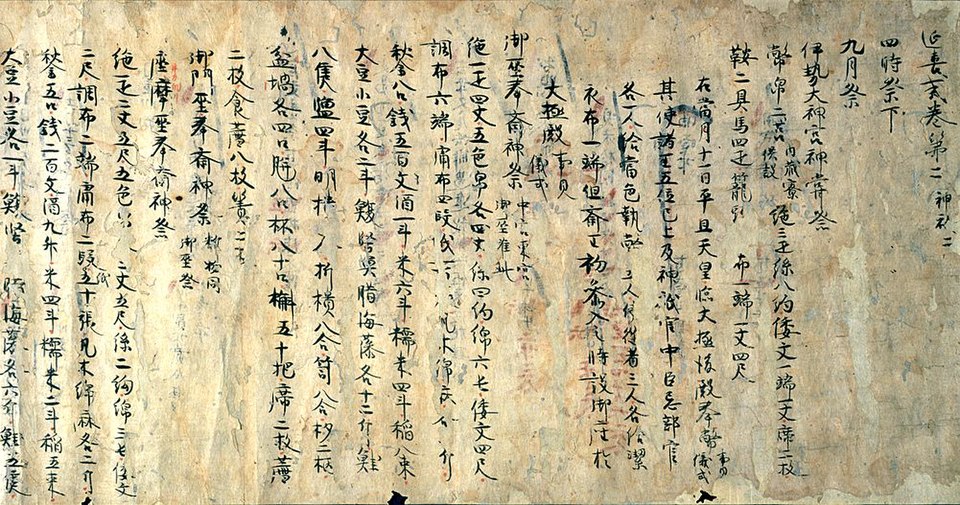 延喜式巻第二 神祇二
四時祭下
九月祭
伊勢太神宮神甞祭
幣帛二 内蔵寮供設 絁三疋絲八約倭文一端一丈席二枚
鞍二具馬四疋籠頭 布一端一丈四尺
右當月十一日平旦天皇臨大極後殿奉幣 事見儀式
其使諸王五位已上及神祇官中臣忌部官
各一人給當色執幣 三人 使従者三人各給潔
衣布一端但齋王初参入之時設御座於
大極殿 事見儀式
御巫奉齋神祭 中宮東宮御巫准此
絁一疋四丈五色帛各四丈絲四約綿六屯倭文四尺
調布六端庸布四段 凡木綿
秋 八口錢五百文酒一斗米六斗糯米四斗稲八束
大豆小豆各二斗鰒堅魚腊海藻各十二斤鮭
八隻盬四斗明櫃八 折樻八合筥八合杉二柄
盆堝各四口瓼八口杯八十口槲五十把席二枚薦
二枚食薦八枚簀二
御門巫奉齋神祭 御巫祭
座摩巫奉齋神祭
絁一疋二丈五尺五色 二丈五尺絲二絇綿三屯倭文
二尺調布二端庸布二段 五十張凡木綿麻各二斤
秋 五口錢二百文酒九升米四斗糯米二斗稲五束
大豆小豆各一斗鰒堅 腊海藻各六斤鮭五隻